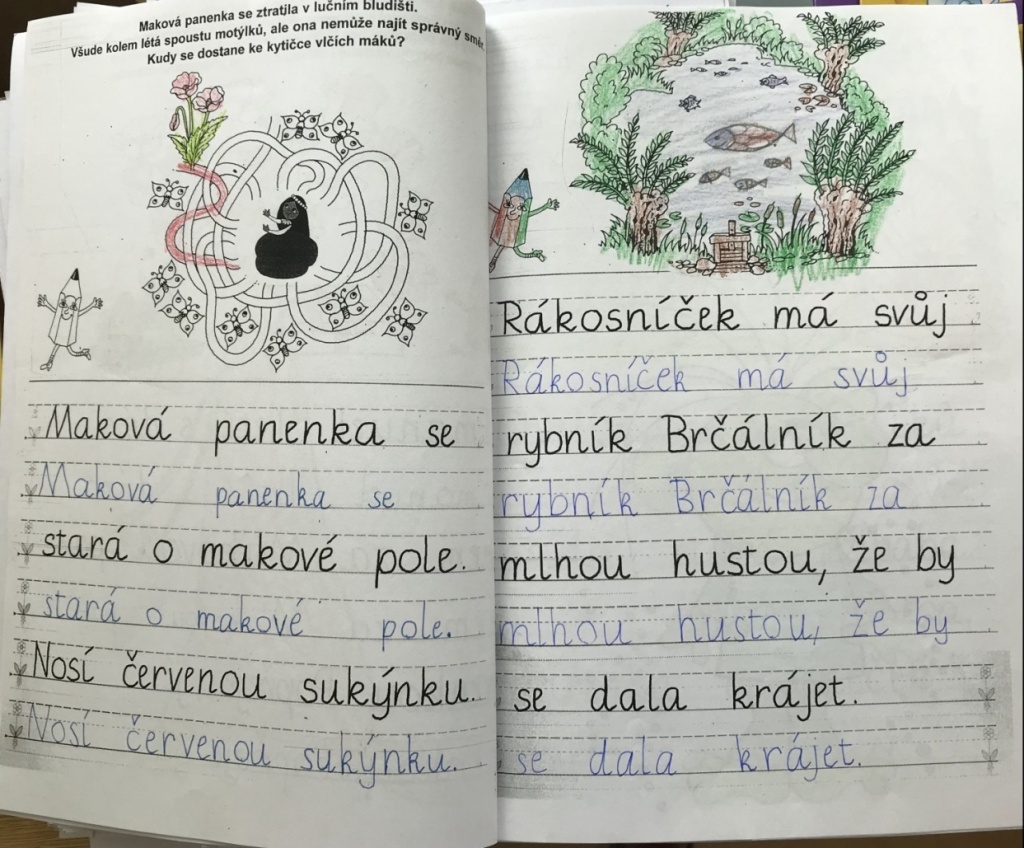 Maková panenka se ztratila v lučním bludišti.
Všude kolem létá spoustu motýlků, ale ona nemůže najít správný směr.
Kudy se dostane ke kytičce vlčích máků?
Maková panenka se
Maková panenka se
stará o makové pole.
stará o makové pole.
Nosí červenou sukýnku.
Nosí červenou sukýnku.
Rákosníček má svůj
Rákosníček má svůj
rybník Brčálník za
rybník Brčálník za
mlhou hustou, že by
mlhou hustou, že by
se dala krájet.
se dala krájet.